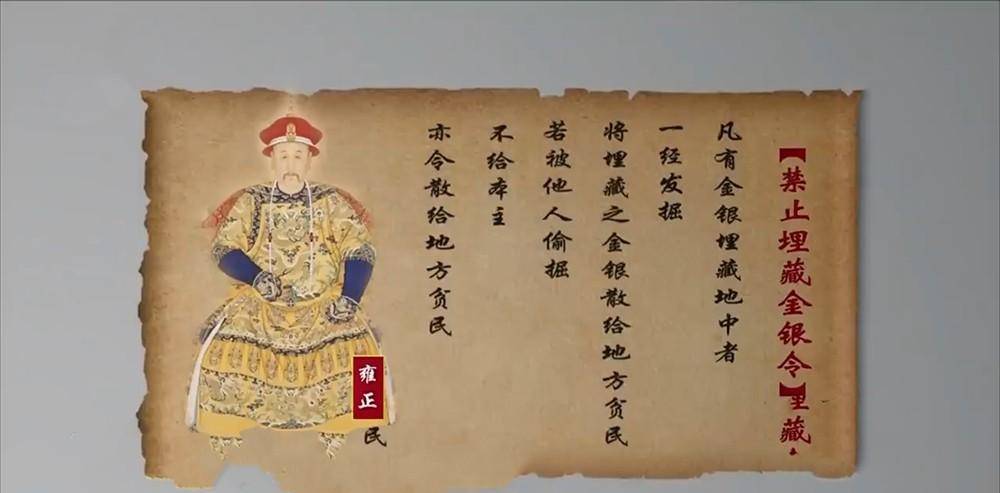 【禁止埋藏金银令】埋藏
凡有金银埋藏地中者
一经发掘
将埋藏之金银散给地方贫民
若被他人偷掘
不给本主
亦令散给地方贫民
民
雍正